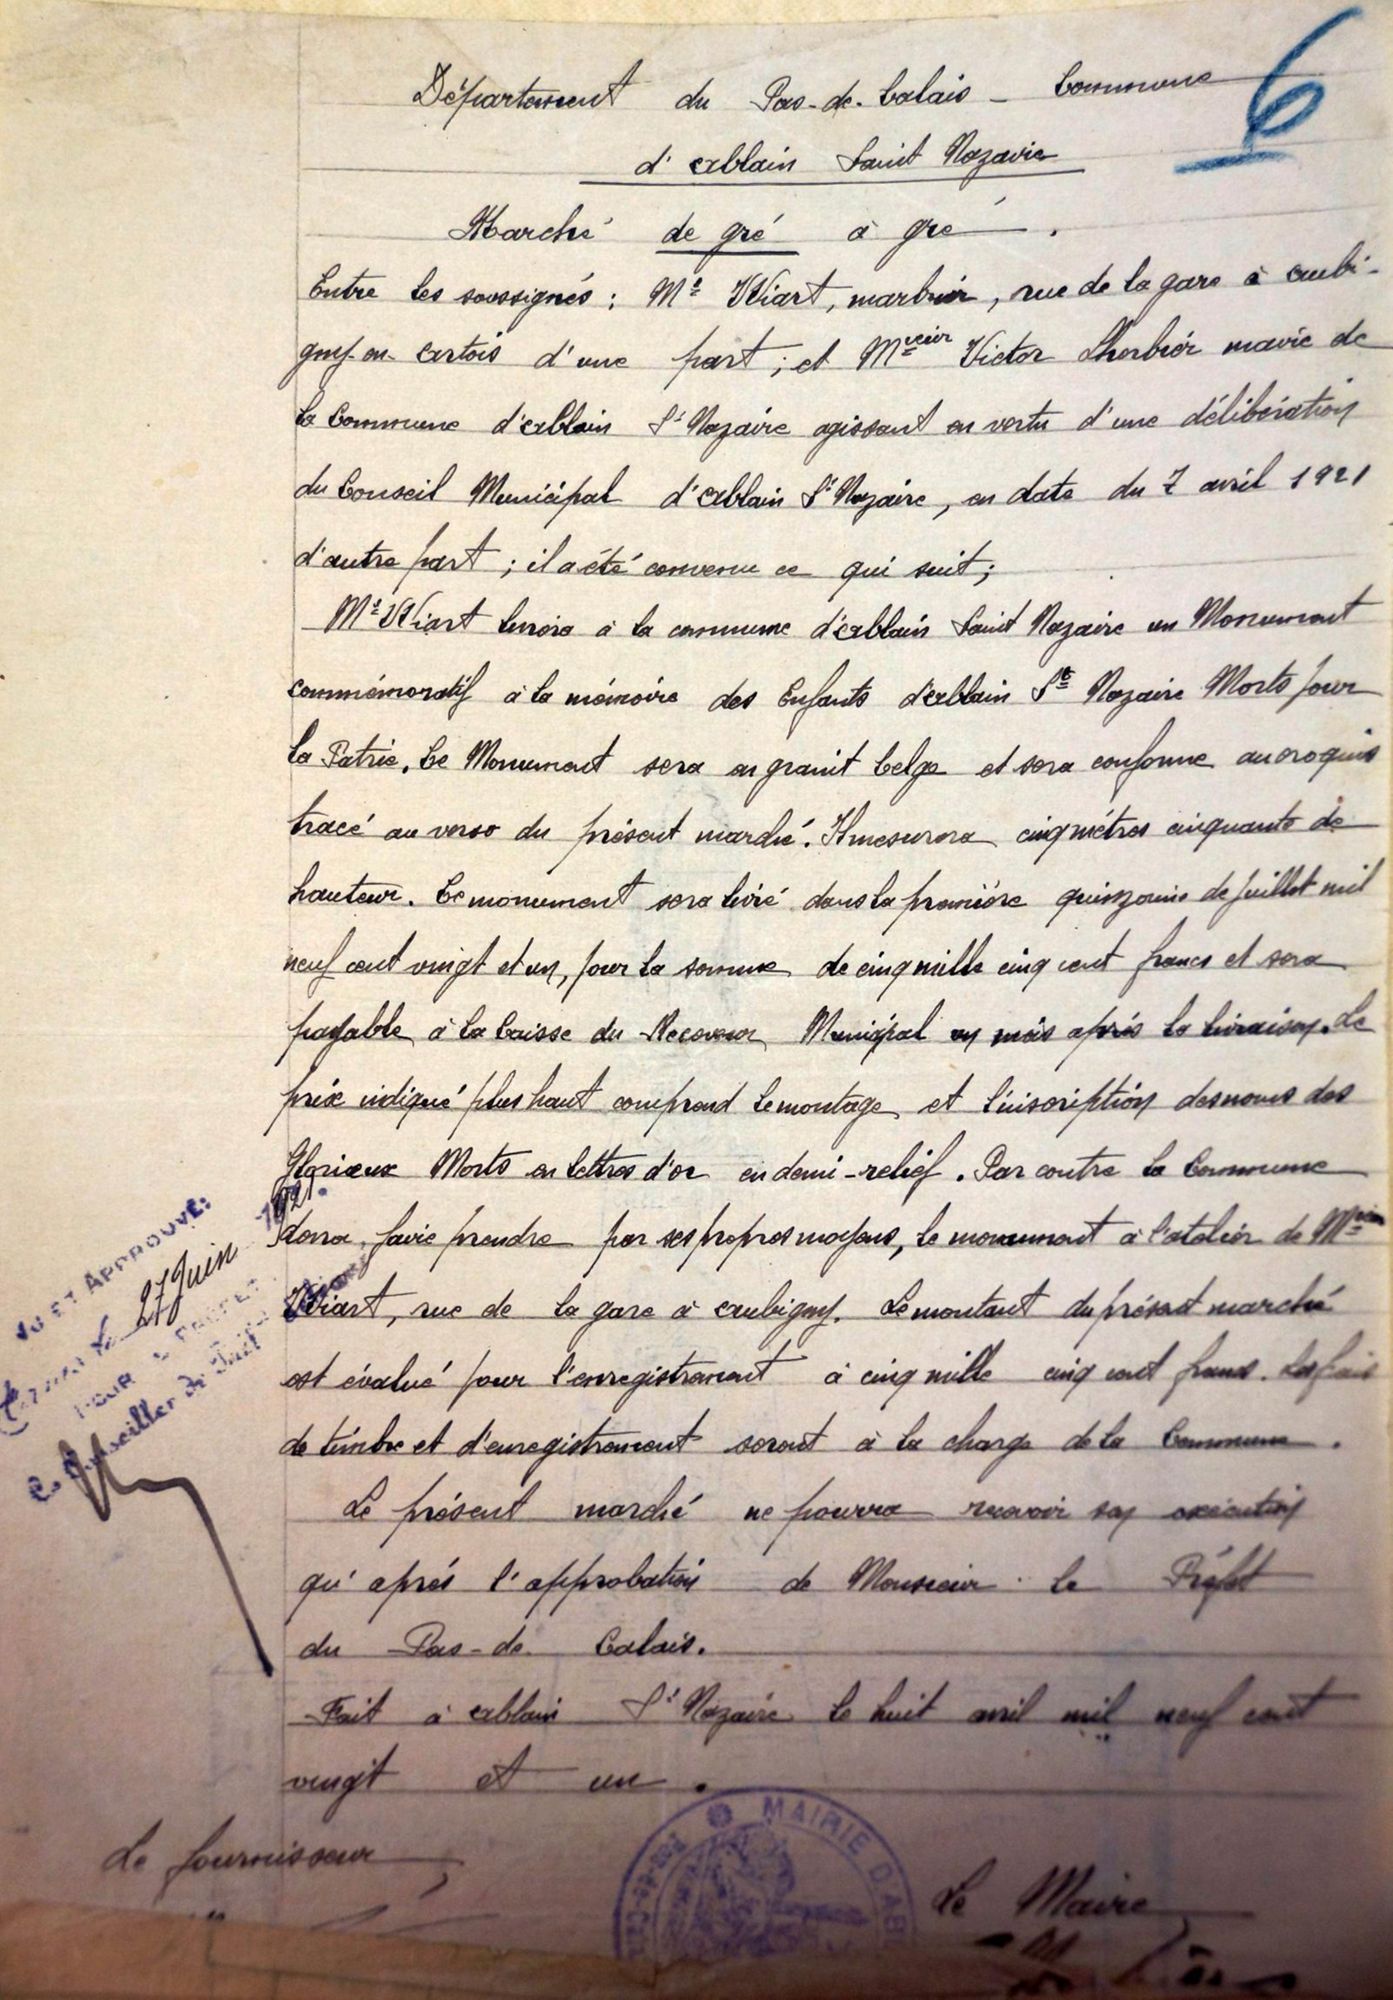 6
Département du Pas-de-Calais - Commune
d'Ablain Saint Nazaire
Marché de gré à gré.
Entre les soussignés : Mr Wiart, marbrier, rue de la gare à Aubi-
gny-en-Artois d'une part ; et Msieur Victor Lherbier maire de
la Commune d'Ablain St Nazaire agissant en vertu d'une délibération
du Conseil Municipal d'Ablain St Nazaire, en date du 7 avril 1921
d'autre part ; il a été convenu ce qui suit ;
Mr Wiart livrera à la commune d'Ablain Saint Nazaire un Monument
commémoratif à la mémoire des Enfants d'Ablain St Nazaire Morts pour
la Patrie. Le Monument sera en granit belge et sera conforme au croquis
tracé au verso du présent marché. Il mesurera cinq mètres cinquante de
hauteur. Le monument sera livré dans la première quinzaine de juillet mil
neuf cent vingt et un, pour la somme de cinq mille cinq cent francs et sera
payable à la Caisse du Receveur Municipal un mois après la livraison. Le
prix indiqué plus haut comprend le montage et l'inscription des noms des
Glorieux Morts en lettres d'or en demi-relief. Par contre la Commune
devra faire prendre par ses propres moyens, le monument à l'atelier de Msieur
Wiart, rue de la gare à Aubigny. Le montant du présent marché
est évalué pour l'enregistrement à cinq mille cinq cent francs. Les frais
de timbre et d'enregistrement seront à la charge de la Commune.
Le présent marché ne pourra recevoir son exécution
qu'après l'approbation de Monsieur le Préfet
du Pas-de-Calais.
Fait à Ablain St Nazaire le huit avril mil neuf cent
vingt et un.
VU ET APPROUVÉ:
le 27 Juin 1921.
POUR LE PRÉFET
Le Conseiller de
Le fournisseur,
MAIRIE D'ABL
Le Maire